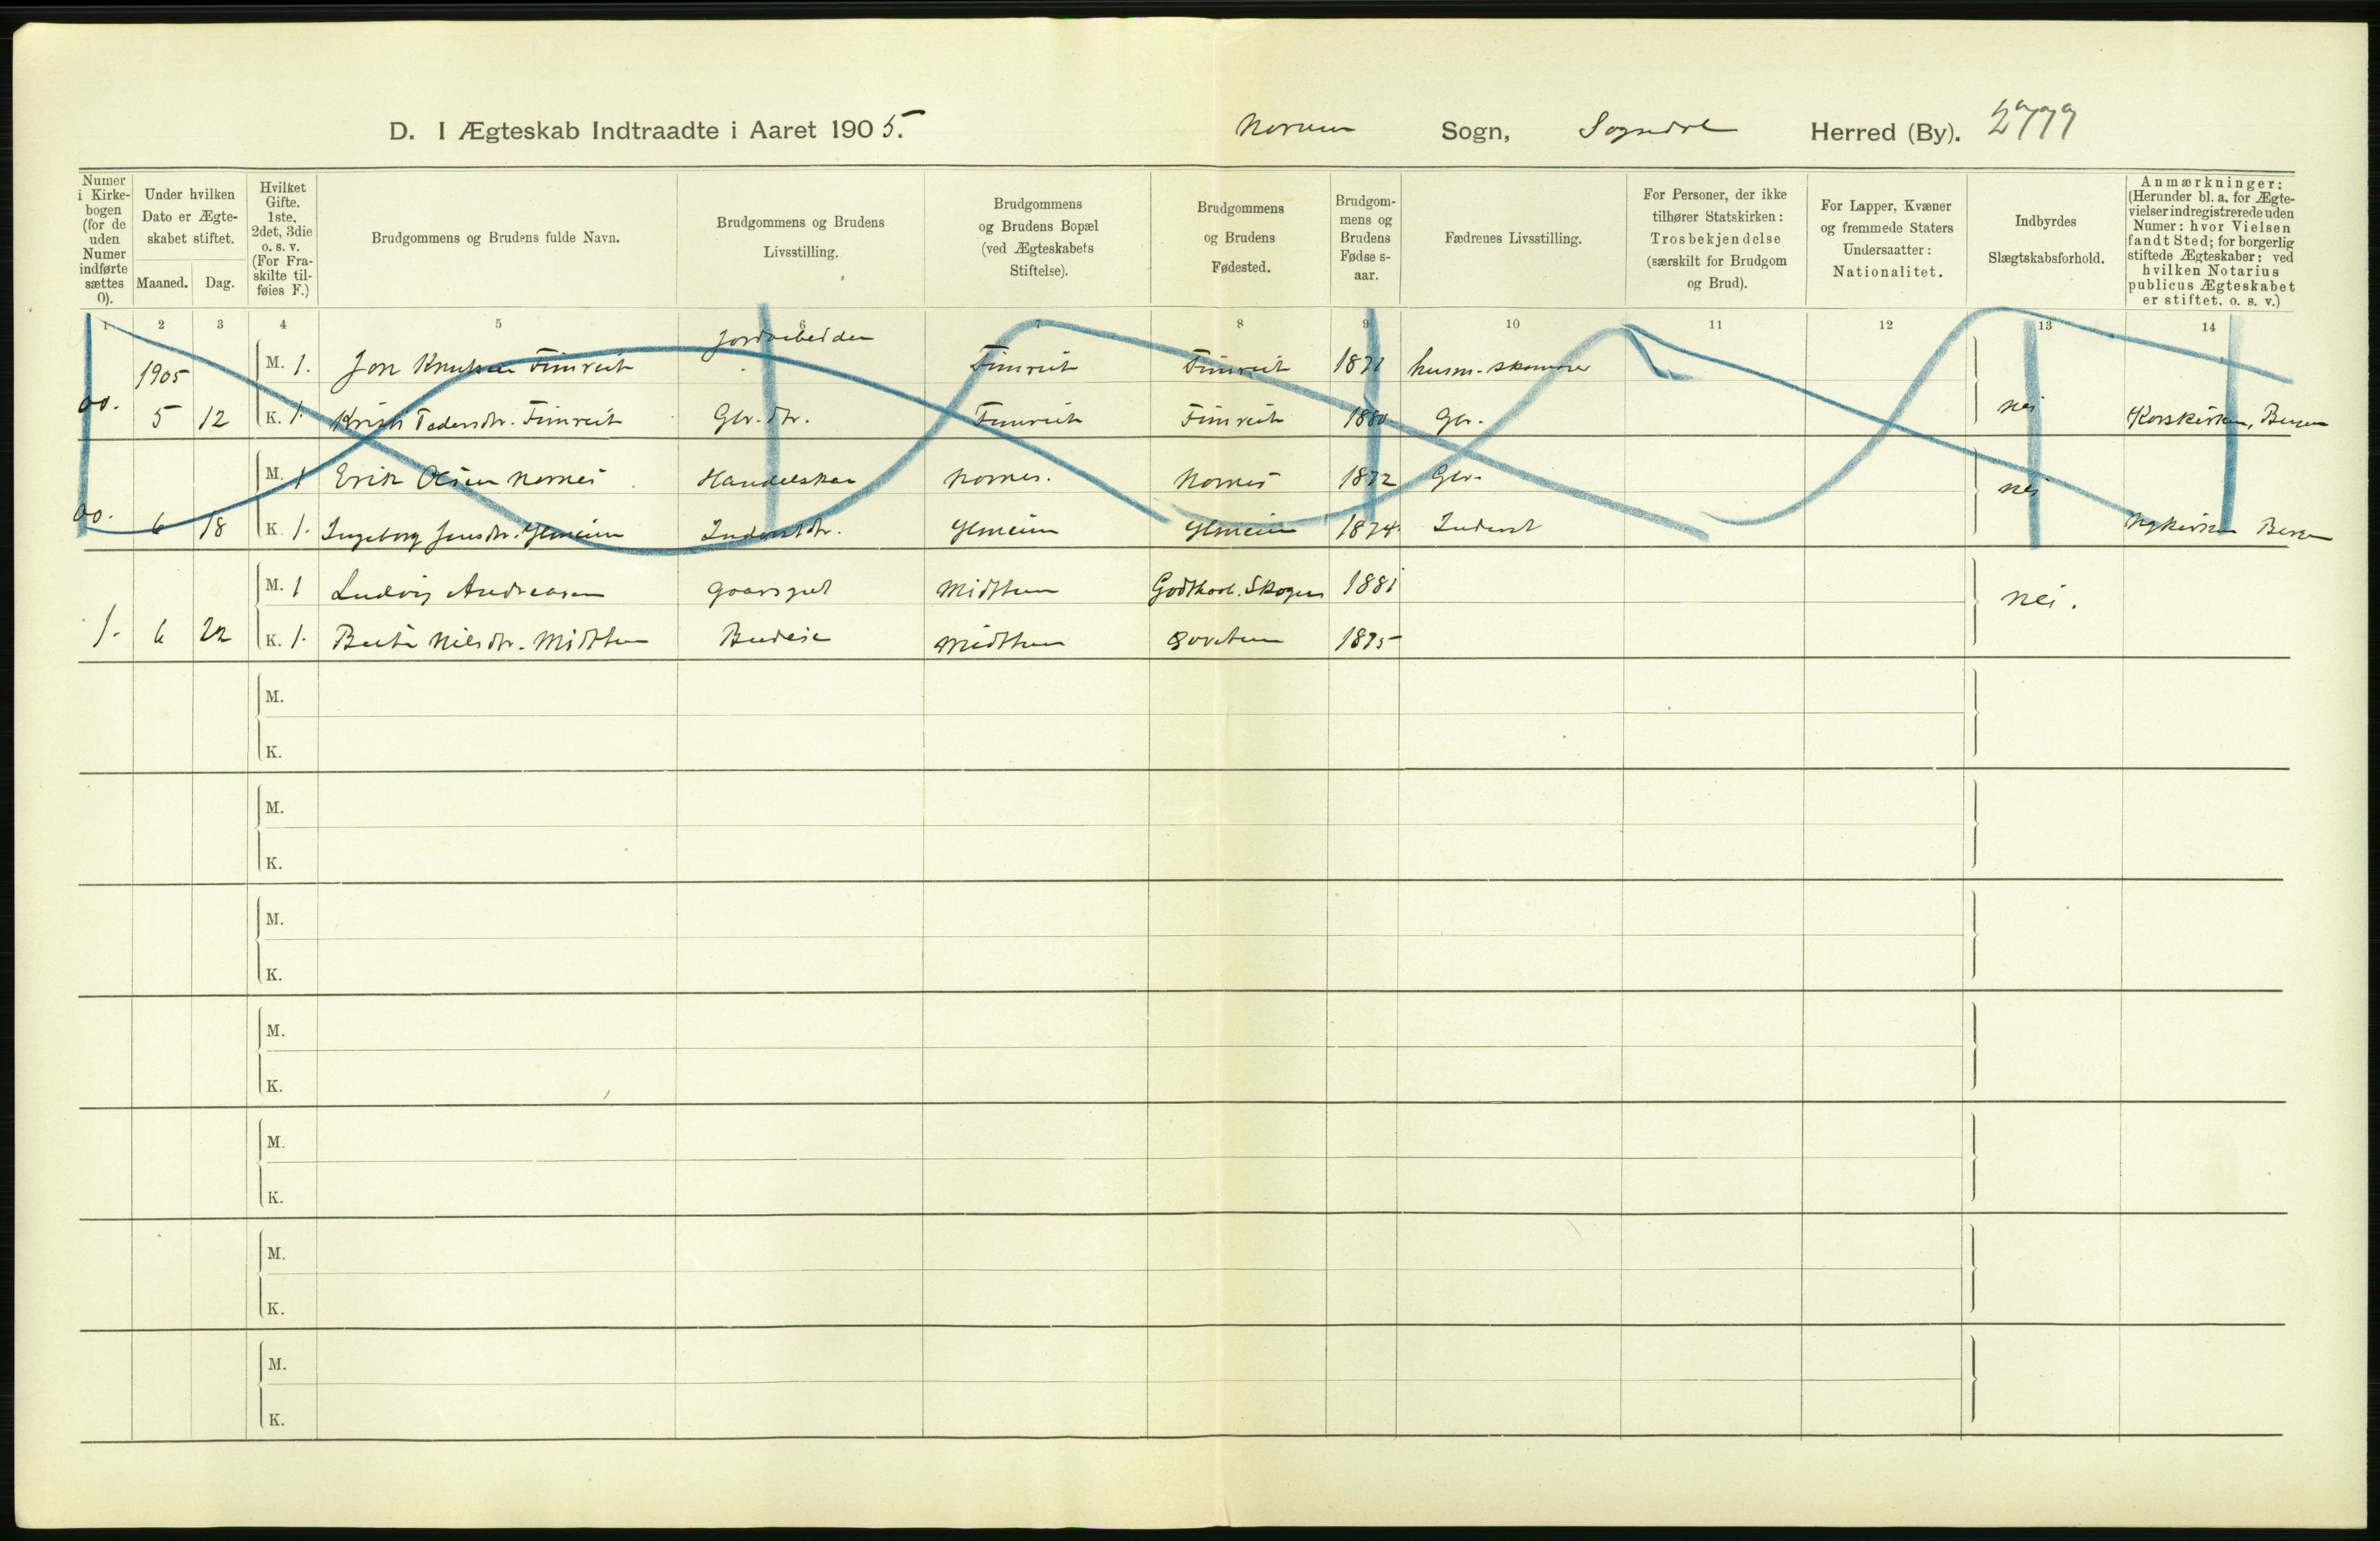 D. I Ægteskab Indtraadte i Aaret 1905. Norum Sogn, Sogndal Herred (By). 2777
Numer i Kirkebogen (for de uden Numer indførte sættes 0).
Under hvilken Dato er Ægteskabet stiftet.
Maaned. Dag.
Hvilket Gifte. 1ste, 2det, 3die o. s. v. (For Fraskilte tilføies F.)
Brudgommens og Brudens fulde Navn.
Brudgommens og Brudens Livsstilling.
Brudgommens og Brudens Bopæl (ved Ægteskabets Stiftelse).
Brudgommens og Brudens Fødested.
Brudgommens og Brudens Fødselsaar.
Fædrenes Livsstilling.
For Personer, der ikke tilhører Statskirken: Trosbekjendelse (særskilt for Brudgom og Brud).
For Lapper, Kvæner og fremmede Staters Undersaatter: Nationalitet.
Indbyrdes Slægtskabsforhold.
Anmærkninger: (Herunder bl. a. for Ægtevielser indregistrerede uden Numer: hvor Vielsen fandt Sted; for borgerlig stiftede Ægteskaber: ved hvilken Notarius publicus Ægteskabet er stiftet. o. s. v.)
1 2 3 4 5 6 7 8 9 10 11 12 13 14
1905 M. 1. Jon Knutsen Fimreit Jordarbeider Fimreit Fimreit 1871 husm.
00. 5 12 K. 1. Kristi Pedersdtr. Fimreit Gbr. dtr. Fimreit Fimreit 1880 Gbr. nei Korskirken, Bergen
M. 1 Erik Olsen Nornes Handelskar Nornes. Nornes 1872 Gbr. nei
00. 6 18 K. 1. Ingeborg Jensdtr. Ylmeim Inderstdtr. Ylmeim Ylmeim 1874. Inderst Nykirken Bergen
M. 1 Ludvig Andreasen gaardsgut Midthun Skoger 1881 nei.
1. 6 22 K. 1. Berta Nilsdtr. Midthun Budeie Midthun 1875
M.
K.
M.
K.
M.
K.
M.
K.
M.
K.
M.
K.
M.
K.